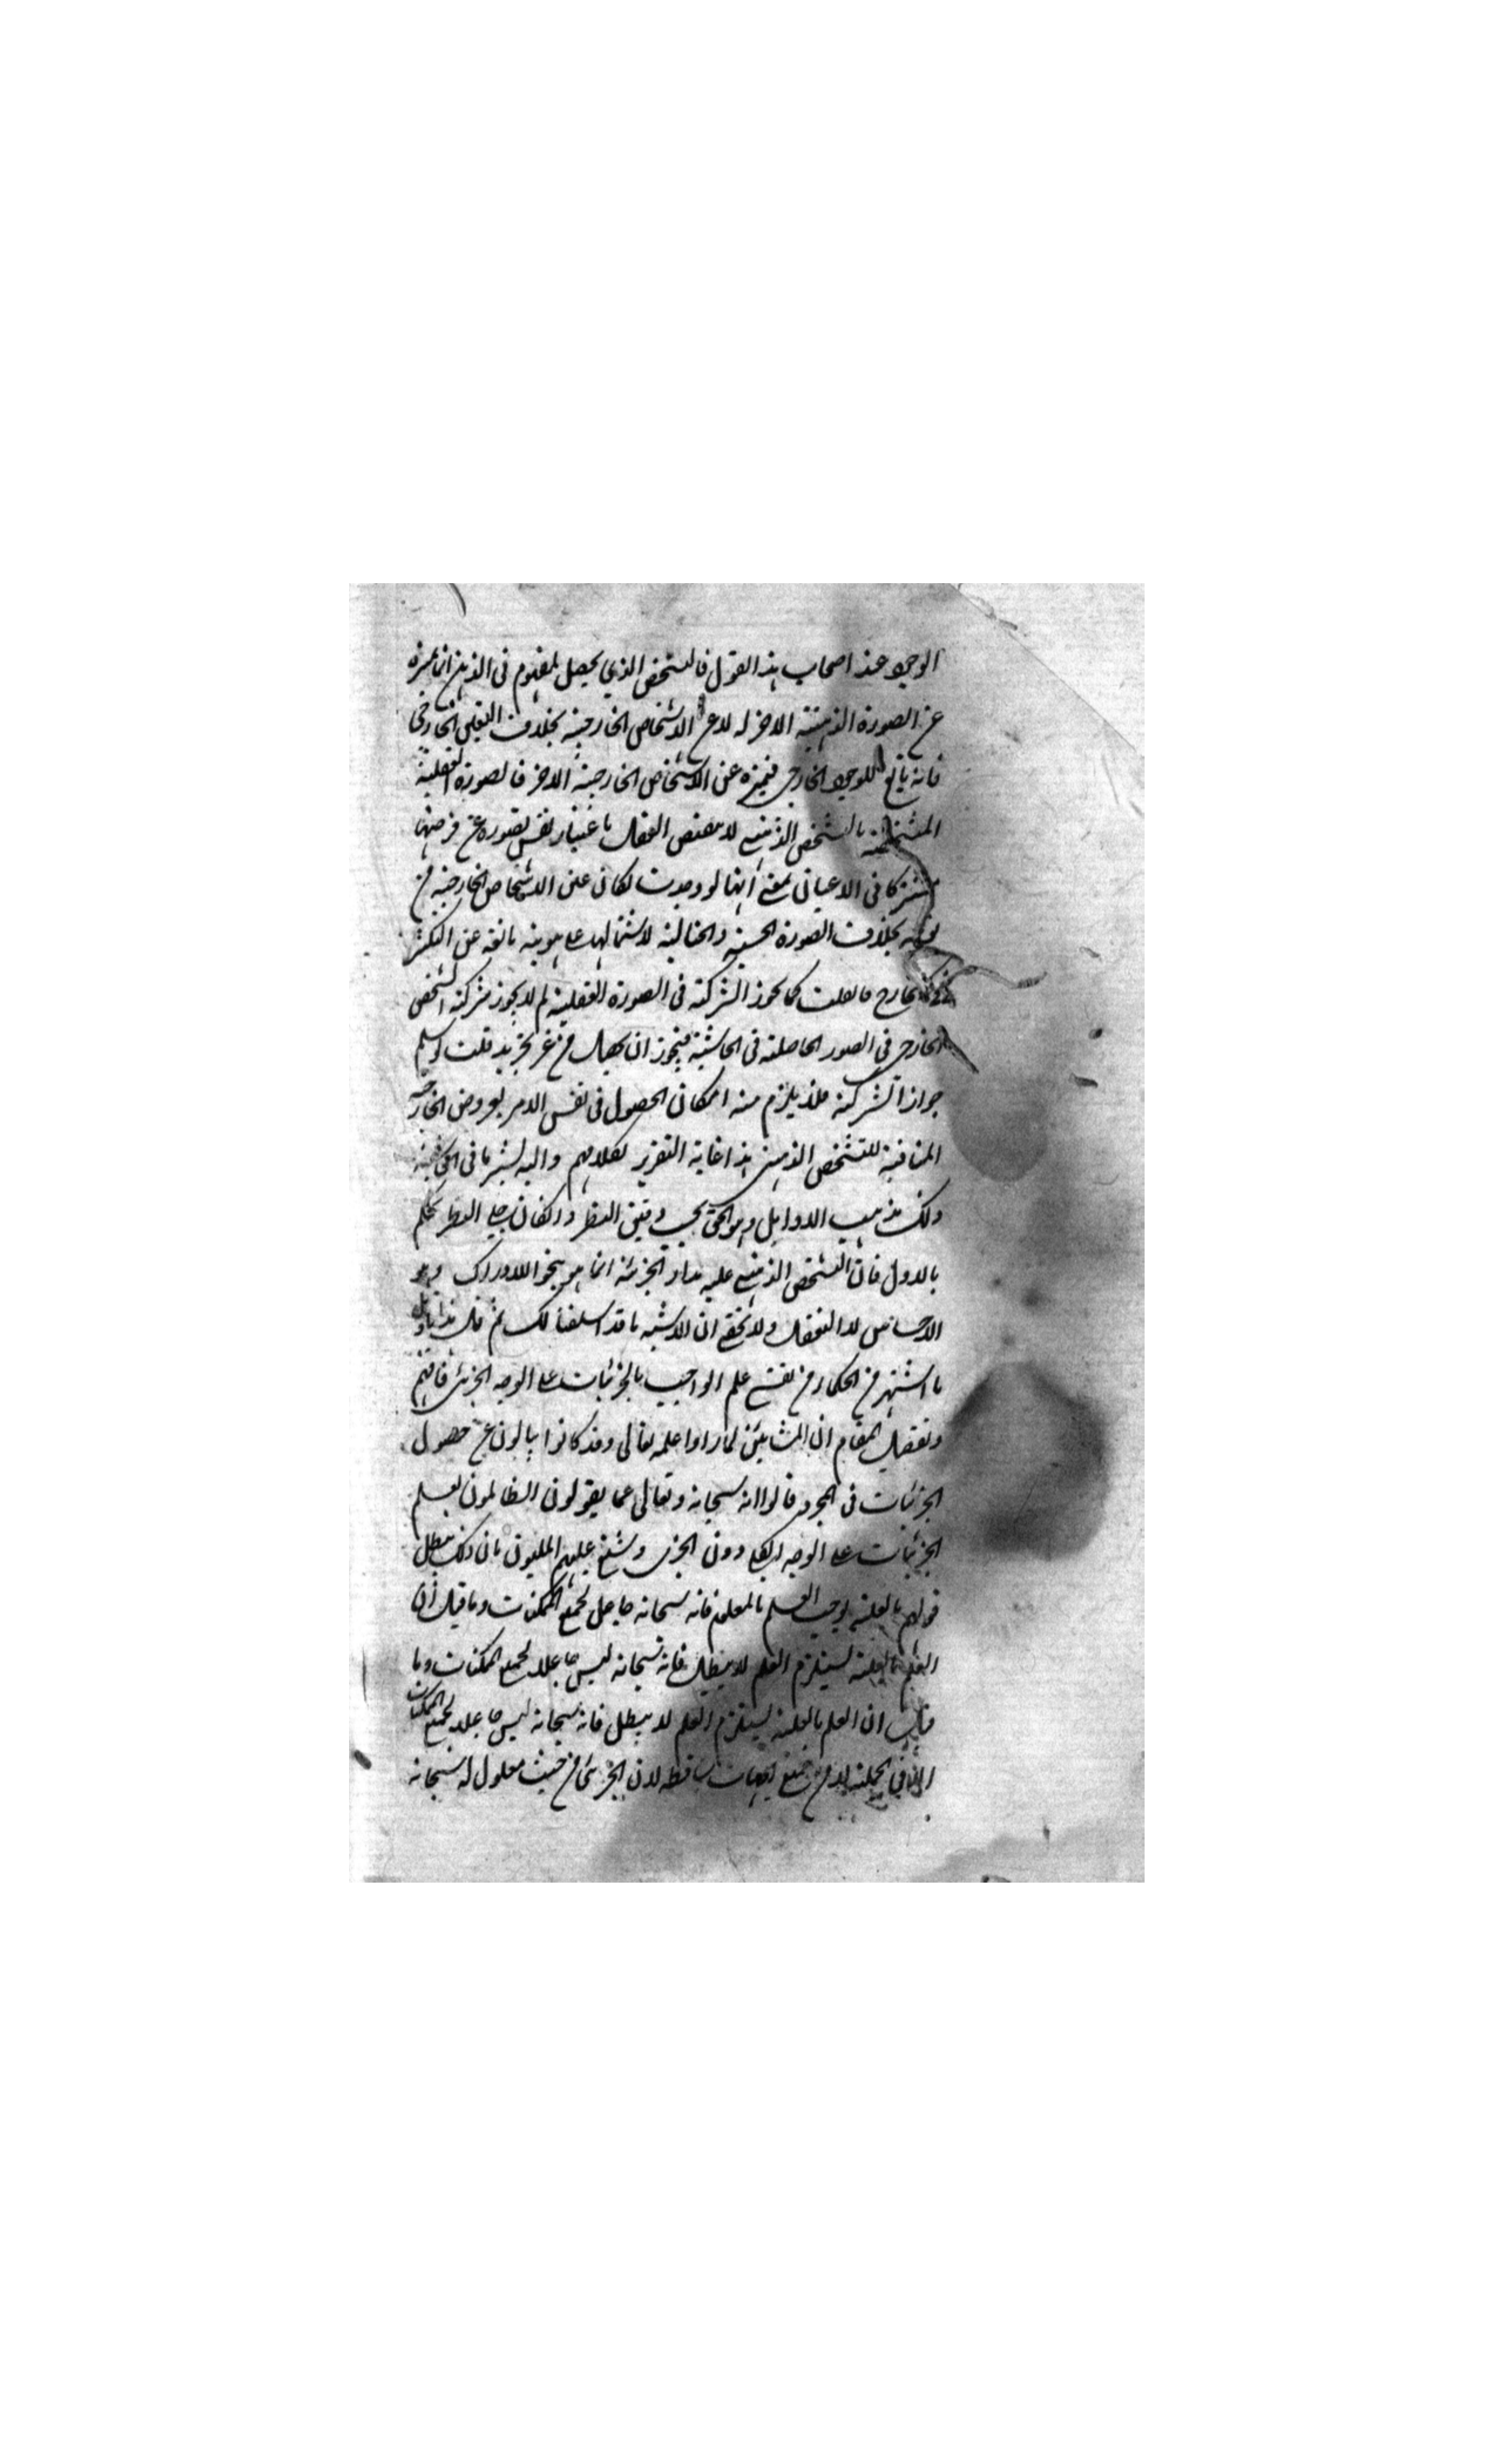 الوجود عند اصحاب هذا القول فالتشخص الذي يحصل للمفهوم في الذهن انما يميزه
عن الصورة الذهنية الاخر له لا عن الاشخاص الخارجية بخلاف التعين الخارجي
فانه تابع للوجود الخارجي فيميزه عن الاشخاص الخارجية الاخر فالصورة العقلية
المشخصة بالتشخص الذهني لا العقل باعتبار نفس تصوره عن فرضها
مشتركا في الاعيان بمعنى انها لو وجدت لكان عين الاشخاص الخارجية من
نوعه بخلاف الصورة الحسية والخيالية لاشتمالها على هوية مانعة عن التكثر
في الخارج فان قلت كما يجوز الشركة في الصورة العقلية لم لا يجوز شركة الشخص
الخارجي في الصور الحاصلة في الحاشية فيجوز ان من غير تجريد قلت لو سلم
جواز الشركة فلا يلزم منه امكان الحصول في نفس الامر لعروض الخارجية
المنافية للتشخص الذهني هذا غاية التقرير لكلامهم واليه يشير ما في
ذلك مذهب الاوايل وهو الحق بحسب دقيق النظر وان كان جلي النظر يحكم
بالاول فان التشخص الذهني عليه مدار الجزئية انما هو بنحو الادراك وهو
الاحساس لا التعقل ولا يخفى ان الاشبه ما قد اسلفنا لك ثم قال هذا تاويل
ما اشتهر من الحكماء من نفي علم الواجب بالجزئيات على الوجه الجزئي فافهم
وتفصيل المقام ان المشايين لما راوا علمه تعالى وقد كانوا يأبون عن حصول
الجزئيات في المجرد قالوا انه سبحانه وتعالى عما يقولون الظالمون يعلم
الجزئيات على الوجه الكلي دون الجزئي وشنع عليهم المليون بان ذلك يبطل
قولهم بالعلية يوجب العلم بالمعلول فانه سبحانه جاعل لجميع الممكنات وما قيل ان
العلم بالعلية يستلزم العلم لا يبطل فانه سبحانه ليس جاعلا لجميع الممكنات وما
قال ان العلم بالعلية يستلزم العلم لا يبطل فانه سبحانه ليس جاعلا لجميع الممكنات
في الجملة لا من جميع الجهات ساقطة لان الجزئي من حيث معلول له سبحانه